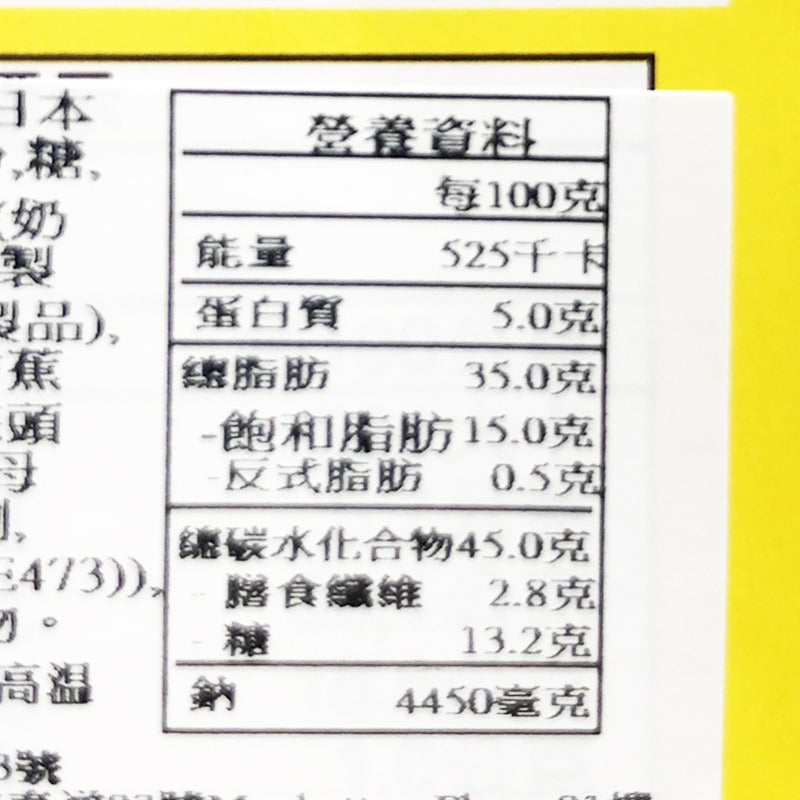 日本
,糖,
(奶
製
製品),
蕉
頭
母
劑,
E473)),
物。
高温
3號
營養資料
每100克
能量 525千卡
蛋白質 5.0克
總脂肪 35.0克
-飽和脂肪 15.0克
-反式脂肪 0.5克
總碳水化合物 45.0克
- 膳食纖維 2.8克
- 糖 13.2克
鈉 4450毫克